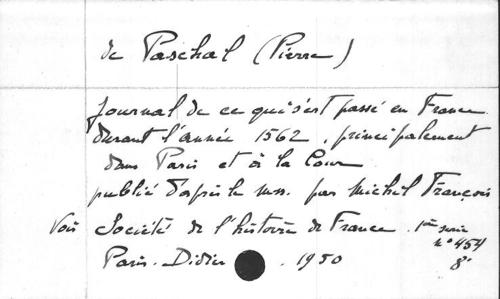 de Paschal (Pierre)
Journal de ce qui s'est passé en France
durant l'année 1562, principalement
dans Paris et à la Cour
publié d'après le mss. par Michel François
Voir Société de l'histoire de France. 1ère série
n° 454
Paris. Didier . 1950 8°